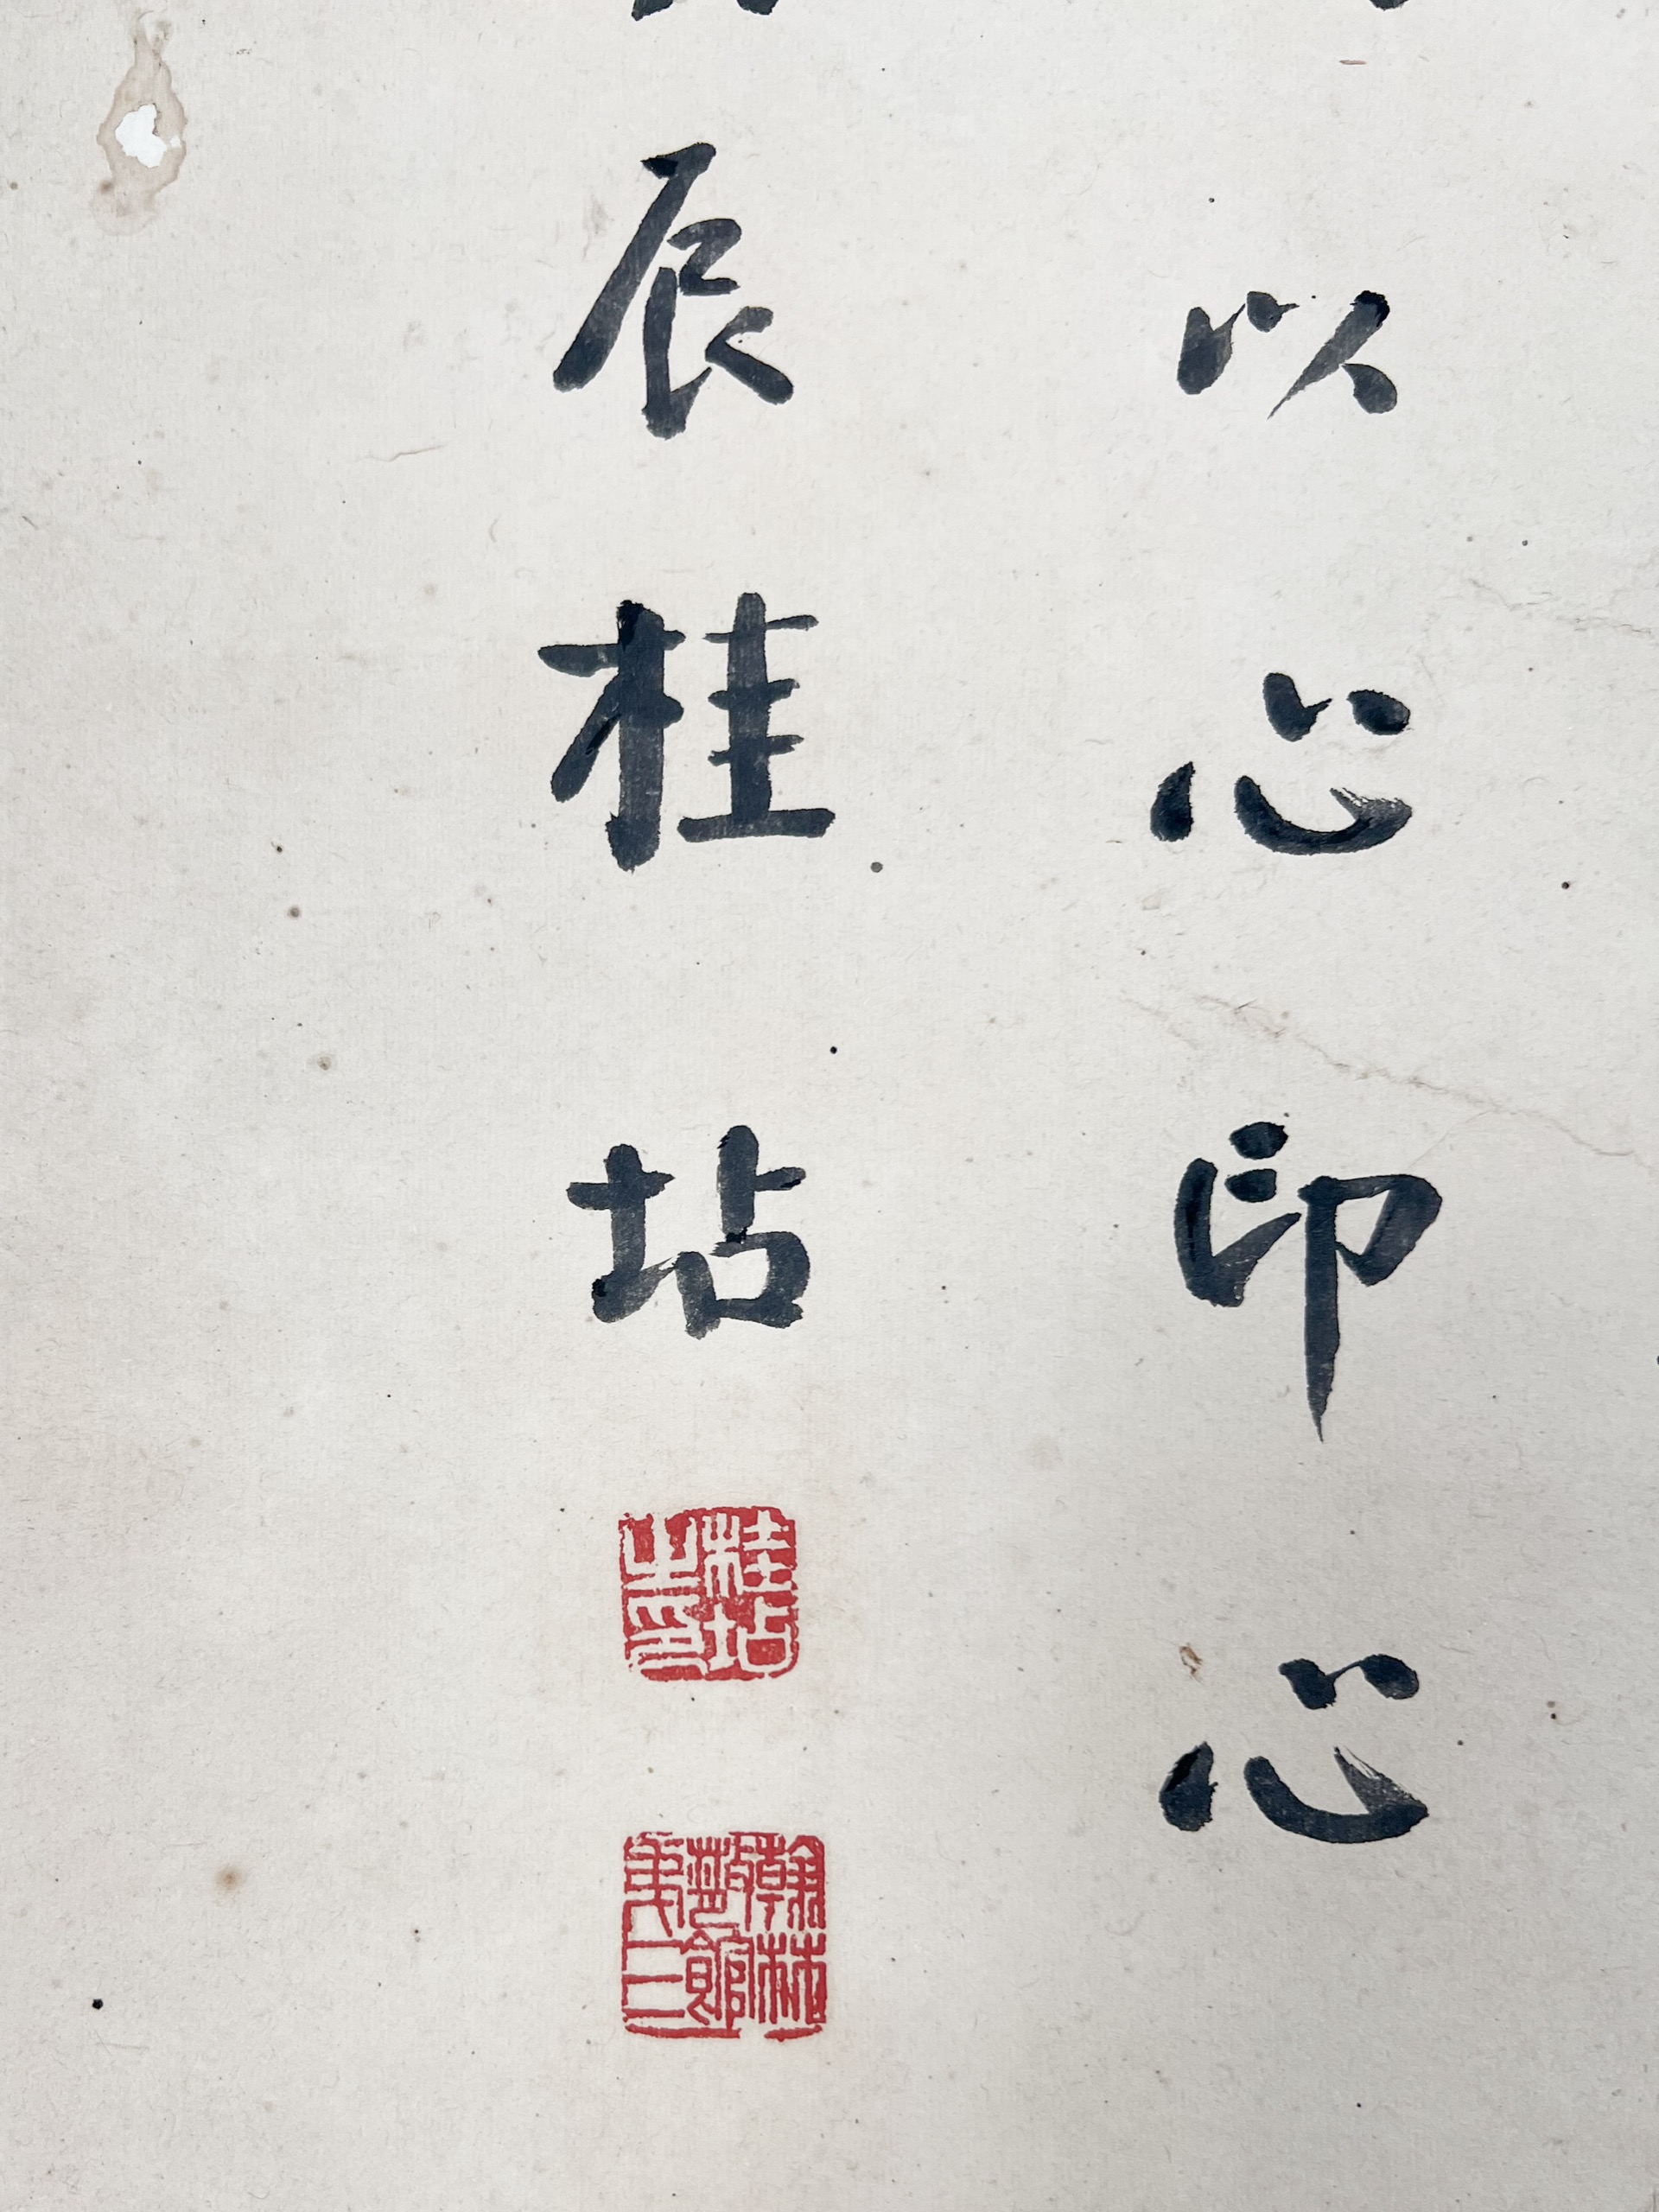 以心印心
辰桂坫
桂坫之印
翰林